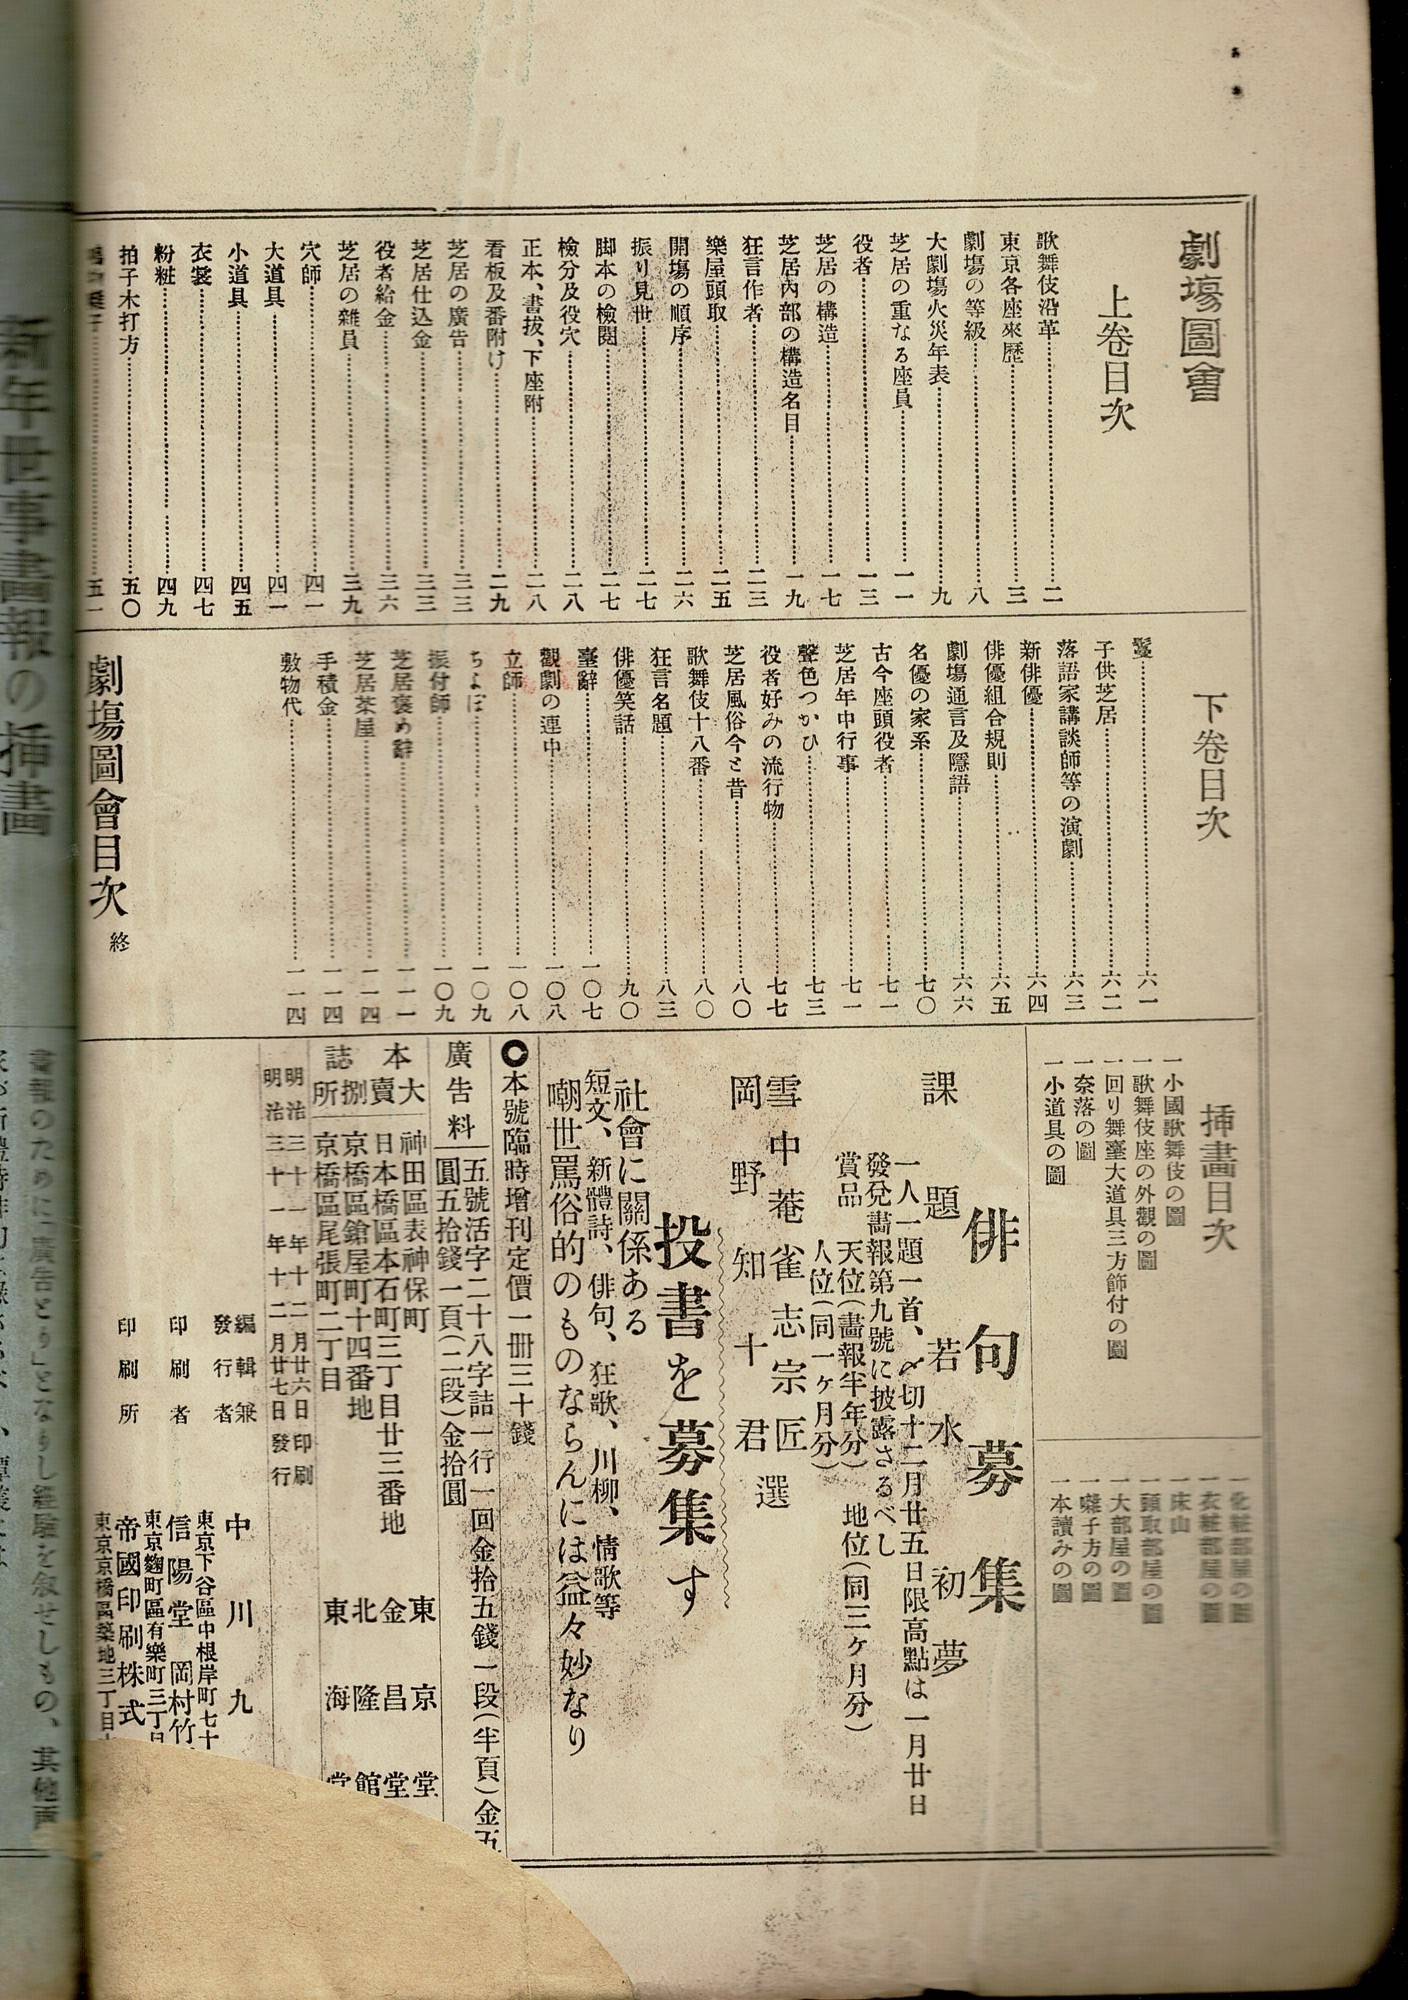 劇塲圖會
上卷目次
歌舞伎沿革 二
東京各座來歴 三
劇塲の等級 八
大劇塲火災年表 九
芝居の重なる座員 一一
役者 一三
芝居の構造 一七
芝居內部の構造名目 一九
狂言作者 二三
樂屋頭取 二五
開塲の順序 二六
振り見世 二七
脚本の檢閲 二七
檢分及役穴 二八
正本、書拔、下座附 二八
看板及番附け 二九
芝居の廣告 三三
芝居仕込金 三三
役者給金 三六
芝居の雜員 三九
穴師 四一
大道具 四一
小道具 四五
衣裳 四七
粉粧 四九
拍子木打方 五〇
五一
下卷目次
鬘 六一
子供芝居 六二
落語家講談師等の演劇 六三
新俳優 六四
俳優組合規則 六五
劇塲通言及隱語 六六
名優の家系 七〇
古今座頭役者 七一
芝居年中行事 七一
聲色つかひ 七三
役者好みの流行物 七七
芝居風俗今と昔 八〇
歌舞伎十八番 八〇
狂言名題 八三
俳優笑話 九〇
臺辭 一〇七
觀劇の連中 一〇八
立師 一〇八
ちよぼ 一〇九
振付師 一〇九
芝居褒め辭 一一一
芝居茶屋 一一四
手積金 一一四
敷物代 一一四
劇塲圖會目次 終
挿畵目次
一小國歌舞伎の圖
一歌舞伎座の外觀の圖
一回り舞臺大道具三方飾付の圖
一奈落の圖
一小道具の圖
一化粧部屋の圖
一衣粧部屋の圖
一床山
一頭取部屋の圖
一大部屋の圖
一囃子方の圖
一本讀みの圖
俳句募集
課題 若水 初夢
一人一題一首、〆切十二月廿五日限高點は一月廿日
發兌畵報第九號に披露さるべし
賞品 天位(畵報半年分) 地位(同三ヶ月分)
人位(同一ヶ月分)
雪中菴雀志宗匠
岡野知十君 選
投書を募集す
社會に關係ある
短文、新體詩、俳句、狂歌、川柳、情歌等
嘲世罵俗的のものならんには益々妙なり
本號臨時增刊定價一册三十錢
廣告料
五號活字二十八字詰一行一回金拾五錢一段(半頁)金五
圓五拾錢一頁(二段)金拾圓
本誌大賣捌所
神田區表神保町 東京堂
日本橋區本石町三丁目廿三番地 金昌堂
京橋區鎗屋町十四番地 北隆館
京橋區尾張町二丁目 東海堂
明治三十一年十二月廿六日印刷
明治三十一年十二月廿七日發行
編輯兼發行者 中川九
東京下谷區中根岸町七十
印刷者 信陽堂 岡村竹
東京麹町區有樂町三丁目
印刷所 帝國印刷株式
東京京橋區築地三丁目十
新年世事畵報の挿畵
畵報のために「廣告とり」となりし經驗を叙せしもの、其他両